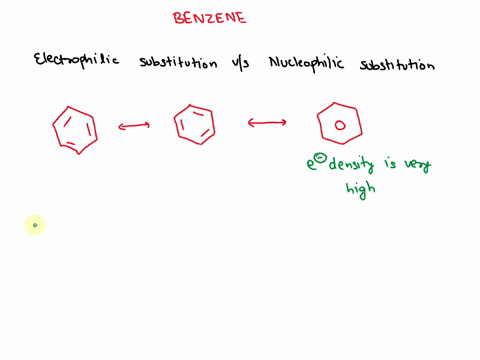 BENZENE
Electrophilic substitution v/s Nucleophilic substitution
e⊖ density is very
high